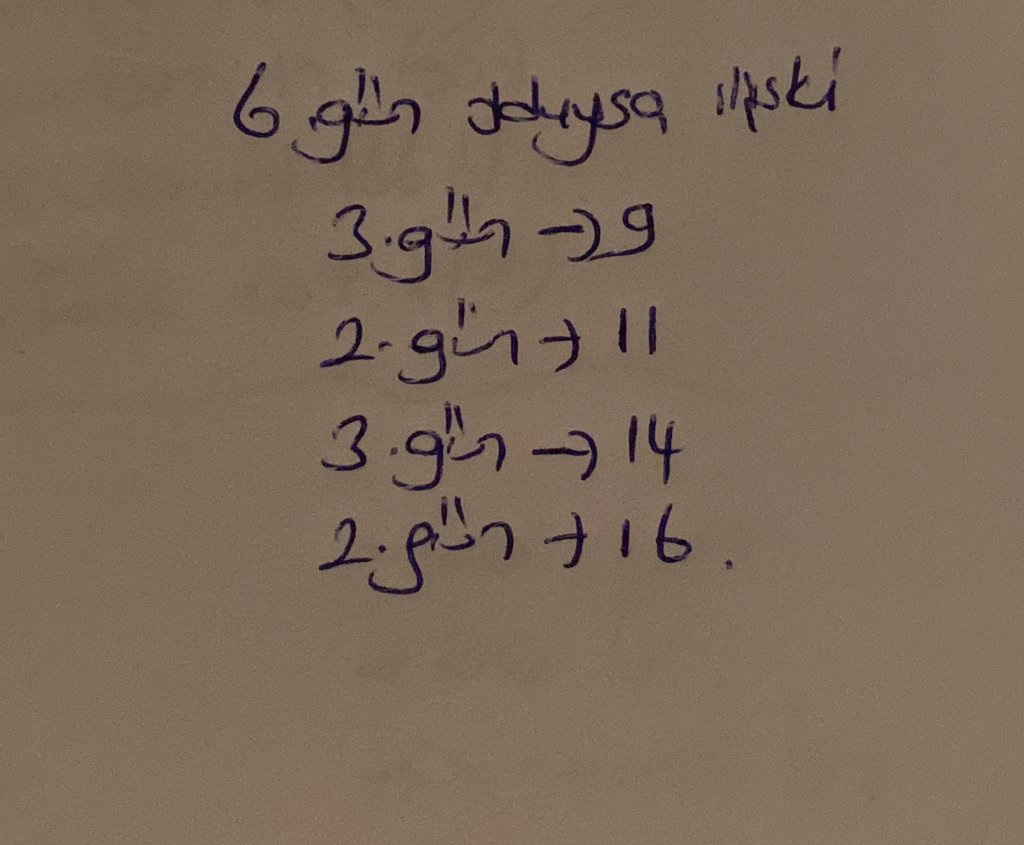 6.gün olduysa ilişki
3.gün → 9
2.gün → 11
3.gün → 14
2.gün → 16.